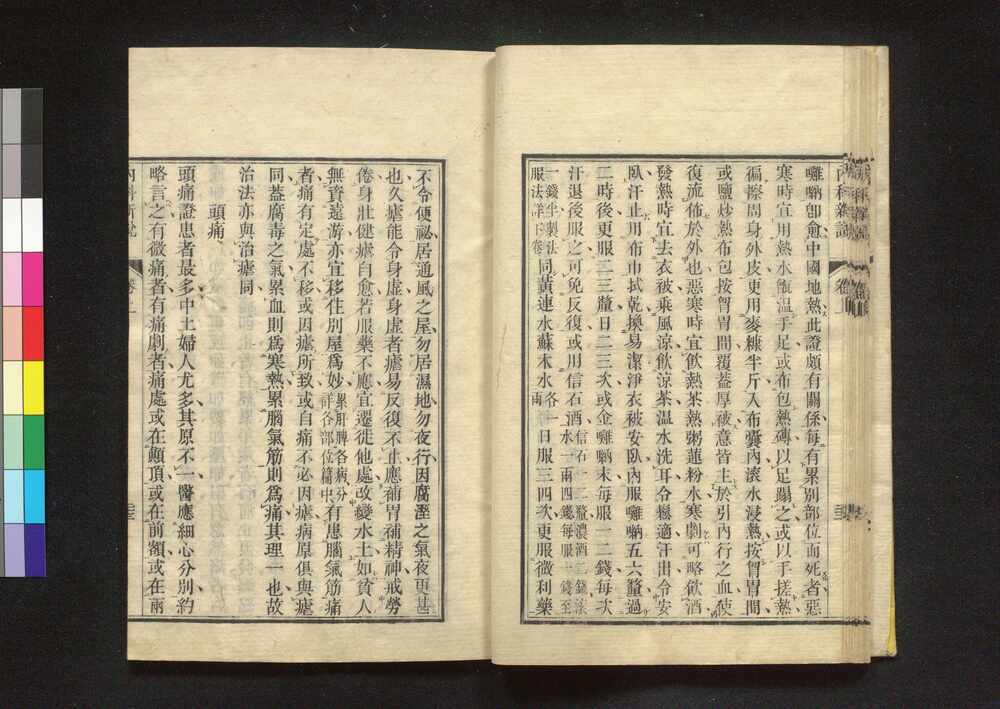 囇啲卽愈中國地熱此證頗有關係每有累別部位而死者惡
寒時宜用熱水瓶溫手足或布包熱磚以足蹋之或以手搓熱
徧擦周身外皮更用麥糠半斤入布囊內滾水浸熱按胷胃間
或鹽炒熱布包按胷胃間覆蓋厚被意皆主於引內行之血使
復流佈於外也惡寒時宜飲熱茶熱粥蓮粉水寒劇可略飲酒
發熱時宜去衣被乘風涼飲涼茶溫水洗耳令櫬適汗出令安
臥汗止用布巾拭乾換易潔淨衣被安臥內服囇啲五六釐過
二時後更服二三釐日二三次或金囇啲末每服一二錢每次
汗退後服之可免反復或用信石酒信石二釐濃酒二錢滾水一兩四錢每服一錢至
一錢半製法服法詳日卷同黃連水蘇木水各一兩一日服三四次更服微利藥
不令便祕居通風之屋勿居濕地勿夜行因腐溼之氣夜更甚
也久瘧能令身虛身虛者瘧易反復不止應補胃補精神戒勞
倦身壯健瘧自愈若服藥不應宜遷徙他處改變水土如貧人
無資遠游亦宜移住別屋爲妙累肝脾各病分詳各部位篇中有患腦氣筋痛
者痛有定處不移或因瘧所致或自痛不必因瘧病原俱與瘧
同蓋腐毒之氣累血則爲寒熱累腦氣筋則爲痛其理一也故
治法亦與治瘧同
頭痛
頭痛證患者最多中土婦人尤多其原不一醫應細心分別約
略言之有微痛者有痛劇者痛處或在顚頂或在前額或在兩